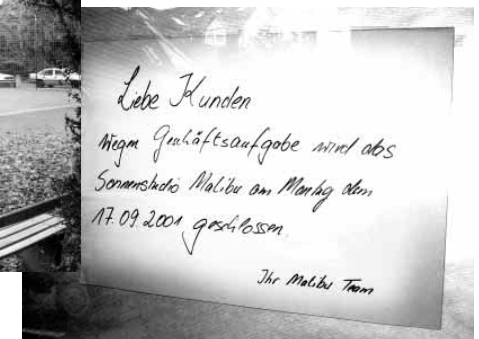 Liebe Kunden
wegen Geschäftsaufgabe wird das
Sonnenstudio Malibu am Montag dem
17.09.2001 geschlossen.
Ihr Malibu Team